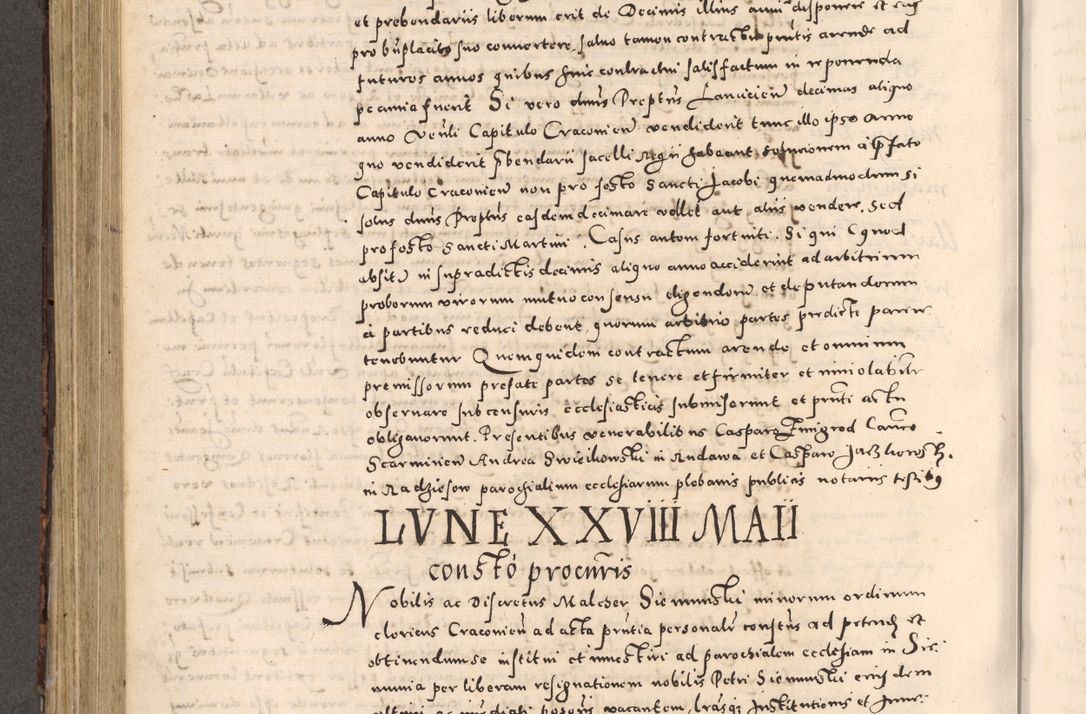 et prebendariis liberum erit de Decimis illius anni disponere et eas
pro b̃nplacito suo convertere, salvo tamen contractu pñtis arende ad
futuros annos quibus huic contractui satisfactum in reponenda
pecunia fuerit Si vero dñus Prepts Lanciciens decimas aliquo
anno Venli Capitulo Cracovien vendiderit tunc illo ipso anno
quo vendiderit pbendarii sacelli Regii habeant solucionem a p̃fato
Capitulo Cracovien non pro festo Sancti Jacobi quemadmodum si
solus dñus Prepts easdem decimare vellet aut aliis vendere, Sed
pro festo Sancti Martini. Casus autem fortuiti. Si qui (quod
absit) in supradictis decimis aliquo anno acciderint ad arbitrium
proborum virorum mutuo consensu eligendorũ et deputandorum
a partibus reduci debent, quorum arbitrio partes predicte parere
tenebuntur Quemquidem contractum arende et omnium
premissorum prefate partes se tenere et firmiter et inviolabilr
observare sub censuris ecclesiasticis submiserunt et pñti actu
obligaverunt. Presentibus venerabilibus Casparo Zmigrod Canco
Scarmirien Andrea Swiczikowski in Rudawa et Casparo Jaczkowsky.
in Radziesow parochialium ecclesiarum plebanis publicis notariis testibq
LVNE XXVIII MAII
constõ procuris
Nobilis ac Discretus Malcher Siemuński minorum ordinum
clericus Cracovien ad acta pñtia personalr constus ad petend et
obtinendum se institui et investiri ad parochialem ecclesiam in Sie
munia per liberam resignationem nobilis Petri Siemunski eius dem
ultimi ac immediati possoris vacantem, lrasq Institutionis et Inve